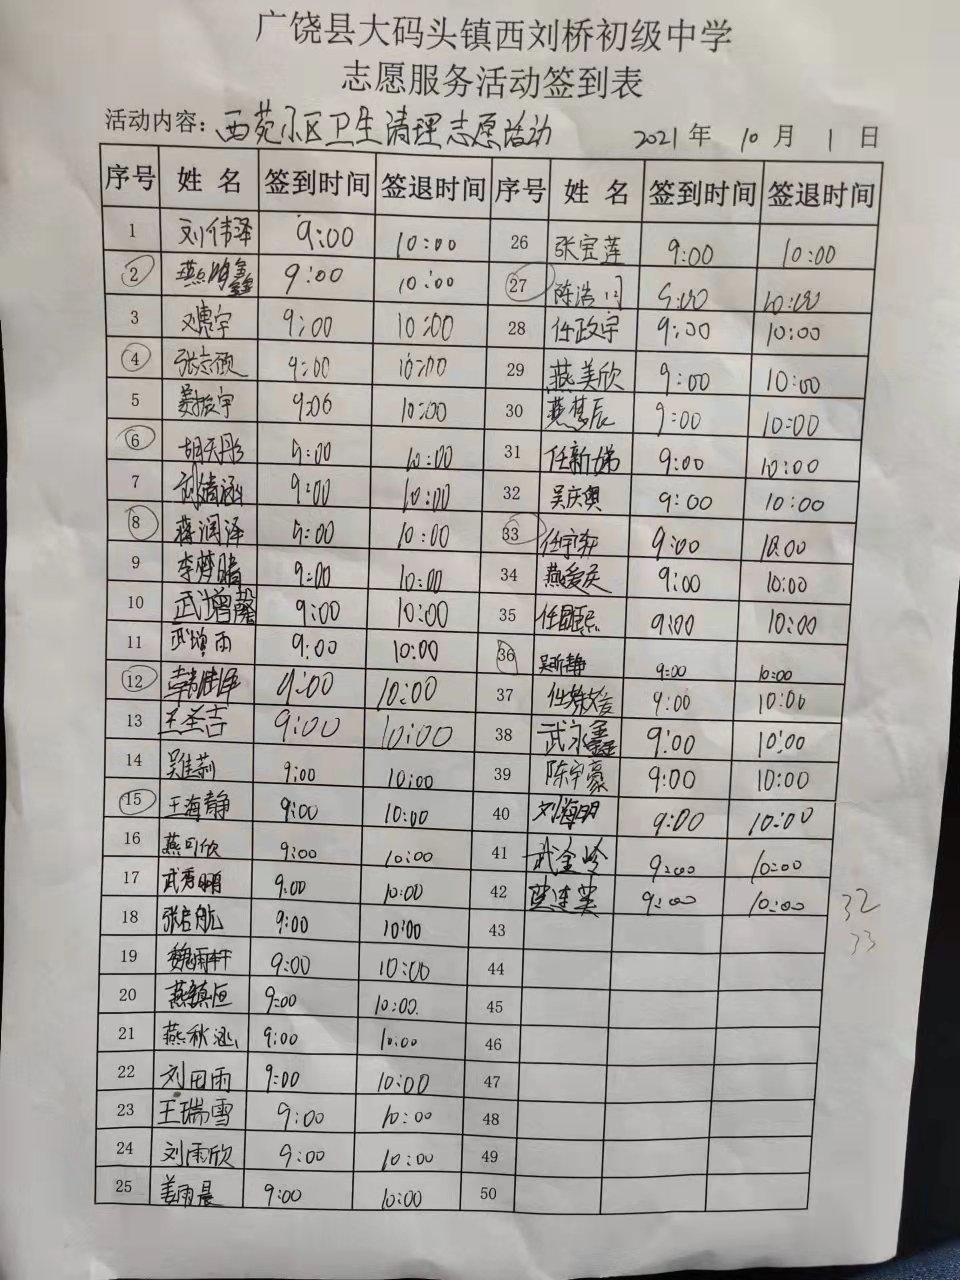 广饶县大码头镇西刘桥初级中学
志愿服务活动签到表
活动内容：西苑小区卫生清理志愿活动 2021年 10月 1日
序号 姓名 签到时间 签退时间 序号 姓名 签到时间 签退时间
1 刘伟泽 9:00 10:00 26 张宝莲 9:00 10:00
2 9:00 10:00 27 陈浩 9:00 10:00
3 9:00 10:00 28 任政宇 9:00 10:00
4 张志硕 9:00 10:00 29 燕美欣 9:00 10:00
5 9:00 10:00 30 燕梦辰 9:00 10:00
6 胡天彤 9:00 10:00 31 任新娣 9:00 10:00
7 刘清涵 9:00 10:00 32 吴庆奥 9:00 10:00
8 蒋润泽 9:00 10:00 33 任宇 9:00 10:00
9 李梦晴 9:00 10:00 34 燕爱英 9:00 10:00
10 武增馨 9:00 10:00 35 9:00 10:00
11 武 雨 9:00 10:00 36 吴昕静 9:00 10:00
12 9:00 10:00 37 9:00 10:00
13 王圣吉 9:00 10:00 38 武永鑫 9:00 10:00
14 吴佳莉 9:00 10:00 39 陈宇豪 9:00 10:00
15 王海静 9:00 10:00 40 刘海明 9:00 10:00
16 燕可欣 9:00 10:00 41 武金岭 9:00 10:00
17 武秀鹏 9:00 10:00 42 9:00 10:00
32
18 张启航 9:00 10:00 43
33
19 魏雨轩 9:00 10:00 44
20 燕镇恒 9:00 10:00 45
21 燕秋涵 9:00 10:00 46
22 刘田雨 9:00 10:00 47
23 王瑞雪 9:00 10:00 48
24 刘雨欣 9:00 10:00 49
25 姜雨晨 9:00 10:00 50